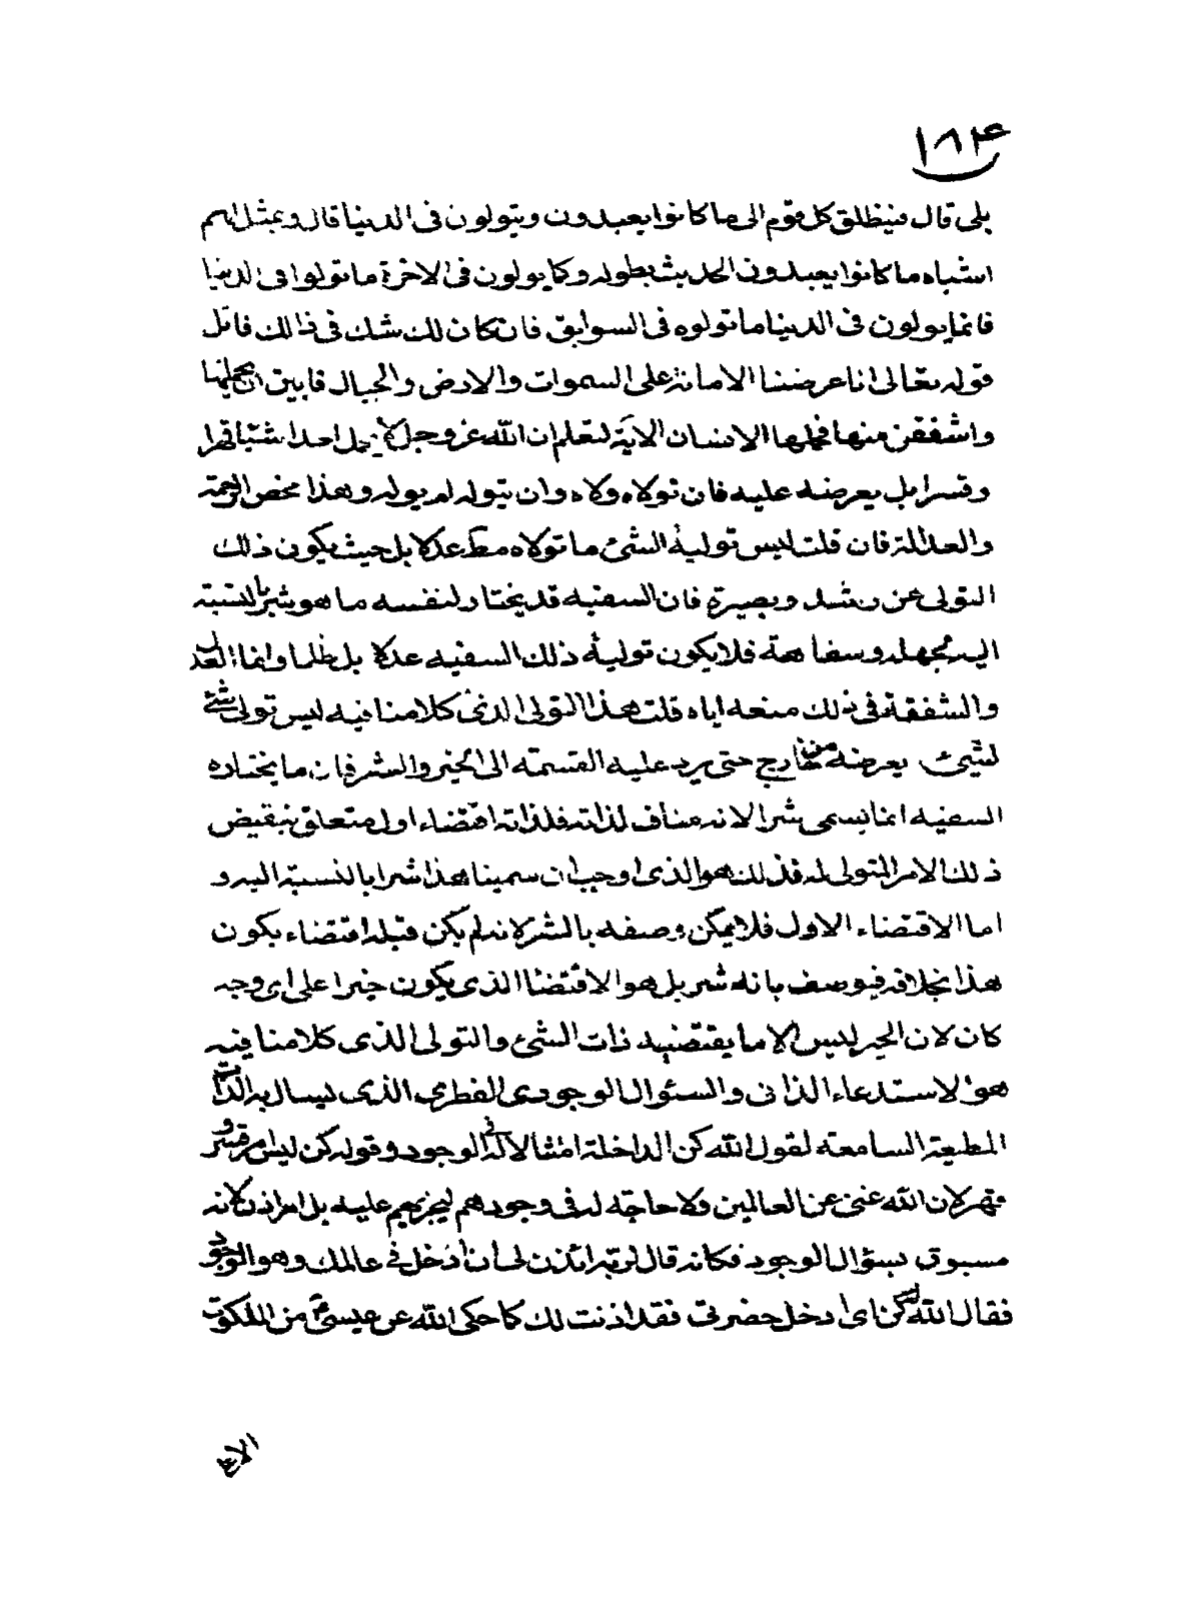 ١٨٤
بلى قال فينطلق كل قوم الى ما كانوا يعبدون ويتولون فى الدنيا قال ويمثل لهم
اشباه ما كانوا يعبدون الحديث بطوله وكما يولون فى الاخرة ما تولوا فى الدنيا
فانما يولون فى الدنيا ما تولوه فى السوابق فان كان لك شك فى ذالك فاتل
قوله تعالى انا عرضنا الامانة على السموات والارض والجبال فابين ان يحملنها
واشفقن منها فحملها الانسان الاية لتعلم ان الله عز وجل لا يحمل احدا شيئا قهرا
وقسرا بل يعرضه عليه فان تولاه ولاه وان يتوله لم يوله وهذا محض الرحمة
والعدالة فان قلت ليس تولية الشئ ما تولاه مط عدلا بل حيث يكون ذلك
التولى عن رشد وبصيرة فان السفيه قد يختار لنفسه ما هو شر بالنسبة
اليه لجهله وسفاهة فلا يكون تولية ذلك السفيه عدلا بل ظلما وانما العدل
والشفقة فى ذلك منعه اياه قلت هذا التولى الذى كلامنا فيه ليس تولى شئ
لشيئ يعرضه من خارج حتى يرد عليه القسمة الى الخير والشر فان ما يختاره
السفيه انما يسمى شرا لانه مناف لذاته فلذاته اقتضاء اول متعلق بنقيض
ذلك الامر المتولى له فذلك هو الذى اوجب ان سمينا هذا شرا بالنسبة اليه و
اما الاقتضاء الاول فلا يمكن وصفه بالشر لانه لم يكن قبله اقتضاء يكون
هذا بخلافه فيوصف بانه شر بل هو الاقتضا الذى يكون خيرا على اى وجه
كان لان الخير ليس الا ما يقتضيه ذات الشئ والتولى الذى كلامنا فيه
هو الاستدعاء الذاتى والسئوال الوجودى الفطرى الذى يسال به الذات
المطيعة السامعة لقول الله كن الداخلة امتثالا له فى الوجود وقوله كن ليس امر قسر و
قهر لان الله غنى عن العالمين ولا حاجة له فى وجودهم ليجبرهم عليه بل امر اذن لانه
مسبوق بسؤال الوجود فكانه قال لربه ائذن لى ان ادخل فى عالمك وهو الوجود
فقال الله كن اى ادخل حضرتى فقد اذنت لك كما حكى الله عن عيسى ع من الملكوت